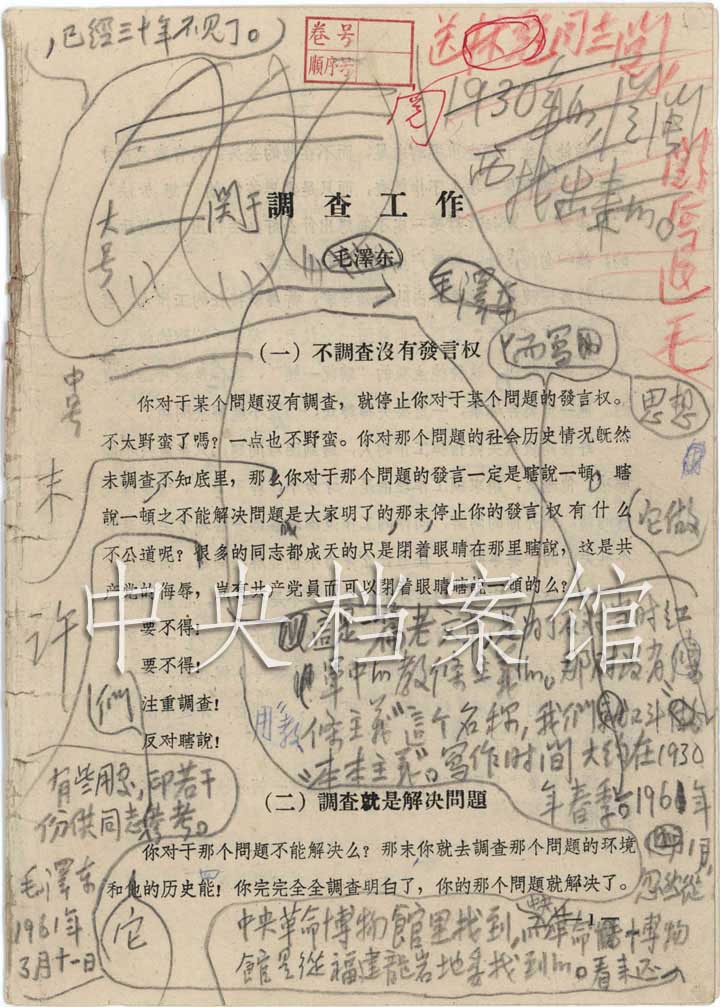 ，已經三十年不见了。
卷号
順序号
送林彪同志閱，
閱后退毛
1930年的，從閩
西找出来的。
大号
关于調查工作
毛澤东
毛澤东
（一）不調查沒有發言权
而寫的
中号
思想
你对于某个問題沒有調查，就停止你对于某个問題的發言权。
不太野蛮了嗎？一点也不野蛮。你对那个問題的社会历史情况旣然
末
未調查不知底里，那么你对于那个問題的發言一定是瞎說一頓，瞎
說一頓之不能解决問題是大家明了的，那末，停止你的發言权有什么
它做
不公道呢？很多的同志都成天的只是閉着眼睛在那里瞎說，这是共
产党的侮辱，豈有共产党員而可以閉着眼睛瞎說一頓的么？
中央档案馆
許
要不得！
要不得！
注重調查！
反对瞎說！
們
这是一篇老文章，是为了反对当时红
軍中的教條主义思想。那时没有
用“教
條主義”這个名称，我們叫它做
“本本主義”。寫作时间大约在1930
年春季。1961年
有些用處，印若干
份供同志們參考。
（二）調查就是解决問題
1月，
你对于那个問題不能解决么？那末，你就去調查那个問題的环境
和他的历史能！你完完全全調查明白了，你的那个問題就解决了。
忽然從
毛澤东
1961年
3月十一日
它
·1·
中央革命博物館里找到，而中央革命博物
館是從福建龍岩地委找到的。看来还